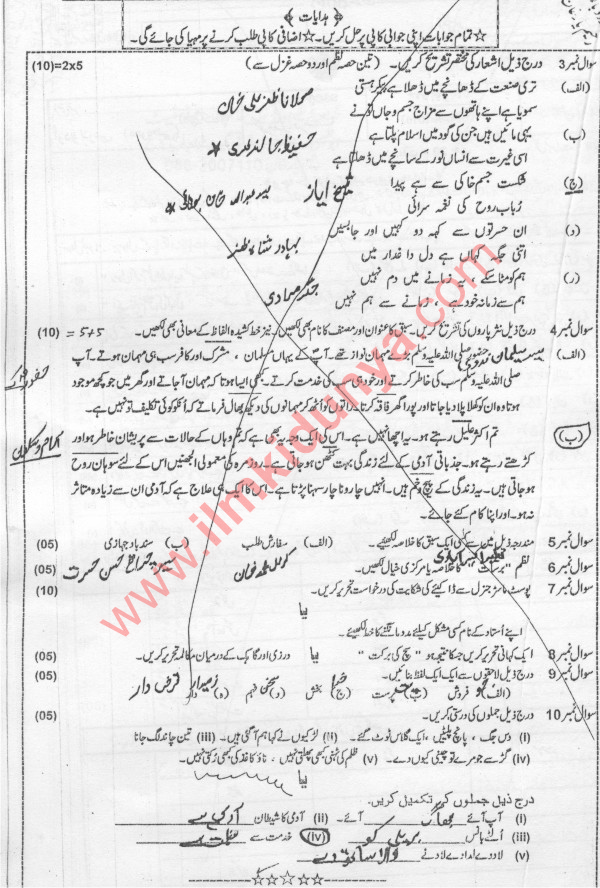 ﴿ ہدایات ﴾
☆ تمام جوابات اپنی جوابی کاپی پر حل کریں۔ ☆ اضافی کاپی طلب کرنے پر مہیا کی جائے گی۔
سوال نمبر 3 درج ذیل اشعار کی مختصر تشریح کریں۔ (تین حصہ نظم اور دو حصہ غزل سے) (10)=2x5
(الف) تری صنعت کے ڈھانچے میں ڈھلا ہے پیکر ہستی
سمویا ہے اپنے ہاتھوں سے مزاج جسم وجاں تونے
مولانا ظفر علی خان
(ب) یہی مائیں ہیں جن کی گود میں اسلام پلتا ہے
اسی غیرت سے انساں نور کے سانچے میں ڈھلتا ہے
حفیظ جالندھری *
(ج) شکست جسم خاکی سے ہے پیدا
رباب روح کی نغمہ سرائی
شیخ ایاز
(د) ان حسرتوں سے کہہ دو کہیں اور جابسیں
اتنی جگہ کہاں ہے دل داغدار میں
بہادر شاہ ظفر
(ر) ہم کو مٹا سکے یہ زمانے میں دم نہیں
ہم سے زمانہ خود ہے زمانے سے ہم نہیں
جگر مرادی
سوال نمبر 4 درج ذیل نثر پاروں کی تشریح کریں۔ سبق کا عنوان اور مصنف کا نام بھی لکھیں۔ نیز خط کشیدہ الفاظ کے معانی بھی لکھیں۔ (10) = 5+5
سید سلیمان ندوی
(الف) حضور صلی اللہ علیہ وسلم بڑے مہمان نواز تھے۔ آپ کے یہاں مسلمان ، مشرک اور کافر سب ہی مہمان ہوتے۔ آپ
صلی اللہ علیہ وسلم سب کی خاطر کرتے اور خود ہی سب کی خدمت کرتے۔ کبھی ایسا ہوتا کہ مہمان آجاتے اور گھر میں جو کچھ موجود
ہوتا وہ ان کو کھلا پلا دیا جاتا اور پورا گھر فاقہ کرتا۔ راتوں کو اٹھ کر مہمانوں کی دیکھ بھال فرماتے کہ انکو کوئی تکلیف تو نہیں ہے۔
(ب) تم اکثر علیل رہتے ہو۔ یہ اچھا نہیں ہے۔ اس کی ایک وجہ یہ بھی ہے کہ تم وہاں کے حالات سے پریشان خاطر ہو اور
آرام و سکون
کڑھتے رہتے ہو۔ جذباتی آدمی کے لئے زندگی بہت کٹھن ہو جاتی ہے۔ روزمرہ کی معمولی الجھنیں اس کے لئے سوہان روح
ہو جاتی ہیں۔ یہ زندگی کے پیچ و خم ہیں۔ انہیں چار و نا چار سہنا پڑتا ہے۔ اس کا ایک ہی علاج ہے کہ آدمی ان سے زیادہ متاثر
نہ ہو۔ اور اپنا کام کئے جائے۔
سوال نمبر 5 مندرجہ ذیل میں سے کسی ایک سبق کا خلاصہ لکھئے۔ (الف) سفارش طلب (ب) سند باد جہازی (05)
نظیر اکبر آبادی کرنل محمد خان چراغ حسن حسرت
سوال نمبر 6 نظم "برسات" کا خلاصہ یا مرکزی خیال لکھیں۔ (05)
سوال نمبر 7 پوسٹ ماسٹر جنرل سے ڈاکیئے کی شکایت کی درخواست تحریر کریں۔ (10)
یا
اپنے استاد کے نام کسی مشکل کیلئے مدد مانگنے کا خط لکھیئے۔
سوال نمبر 8 ایک کہانی تحریر کریں جس کا نتیجہ ہو " سچ کی برکت " یا درزی اور گاہک کے درمیان مکالمہ تحریر کریں۔ (05)
سوال نمبر 9 درج ذیل لاحقوں سے ایک ایک لفظ بنائیں۔ (05)
(الف) فروش (ب) پرست (ج) بخش (د) سخن فہم (ہ) زمیندار دار قرض دار
سوال نمبر 10 درج ذیل جملوں کی درستی کریں۔ (05)
(i) دس چمچ ، پانچ پلیٹیں ، ایک گلاس ٹوٹ گئے۔ (ii) لڑکیوں نے کہا ہم آگئی ہیں۔ (iii) تین چاند لگ جانا
(iv) گڑ سے جو مرے تو چینی کیوں دے۔ (v) ظلم کی ٹہنی کبھی پھلتی نہیں ، ناؤ کاغذ کی کبھی رکتی نہیں۔
یا
درج ذیل جملوں کی تکمیل کریں۔
(i) آپ آئے بھاگ آئے۔ (ii) آدمی کا شیطان آدمی ہے
(iii) الٹے بانس بریلی کو (iv) خدمت سے عظمت ہے
(v) لاد دے لدا دے لاد نے والا ساتھ دے
☆☆☆☆
www.ilmkidunya.com